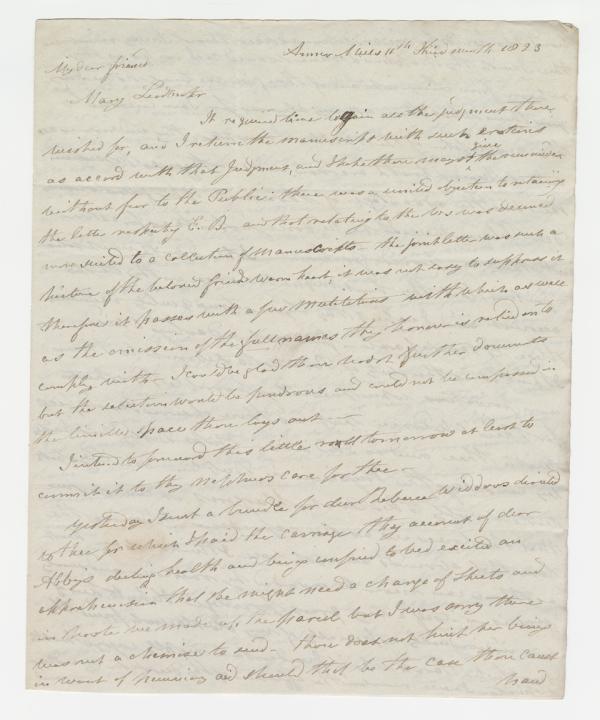 Anner Mills 11th Third month 1823
My dear friend
Mary Leadbeater
It required time to gain all the judgment thou
wished for, and I return the manuscript with such
as accord with that Judgment, and I take thou mayst give the remainder
without fear to the Public: there was a united objection to retaining
the letter respecting E. B. and that relating to the was deemed
more suited to a collection of Manuscripts the joint letter was such a
picture of the beloved friends warm heart, it was not easy to suppress it
therefore it passes with a few Mutilations with which as well
as the omission of the full names thy honour is relied on to
comply with. I could be glad thou hadst further documents
but the selection would be ponderous and could not be compassed in
the limited space thou lays out
I intend to forward this little roll tomorrow at least to
commit it to thy nephews care for thee.
Yesterday I sent a bundle for dear Rebecca Widdows directed
to thee for which I paid the carriage thy account of dear
Abby's declining health and being confined to bed excited an
apprehension that she might need a change of sheets and
in haste we made up the parcel but I was sorry there
was not a chemise to send. thou does not hint her being
in want of and should that be the case thou canst
hand